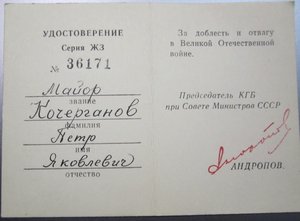 УДОСТОВЕРЕНИЕ
Серия ЖЗ
№ 36171
Майор
звание
Кочерганов
фамилия
Петр
имя
Яковлевич
отчество
За доблесть и отвагу
в Великой Отечественной
войне.
Председатель КГБ
при Совете Министров СССР
АНДРОПОВ.